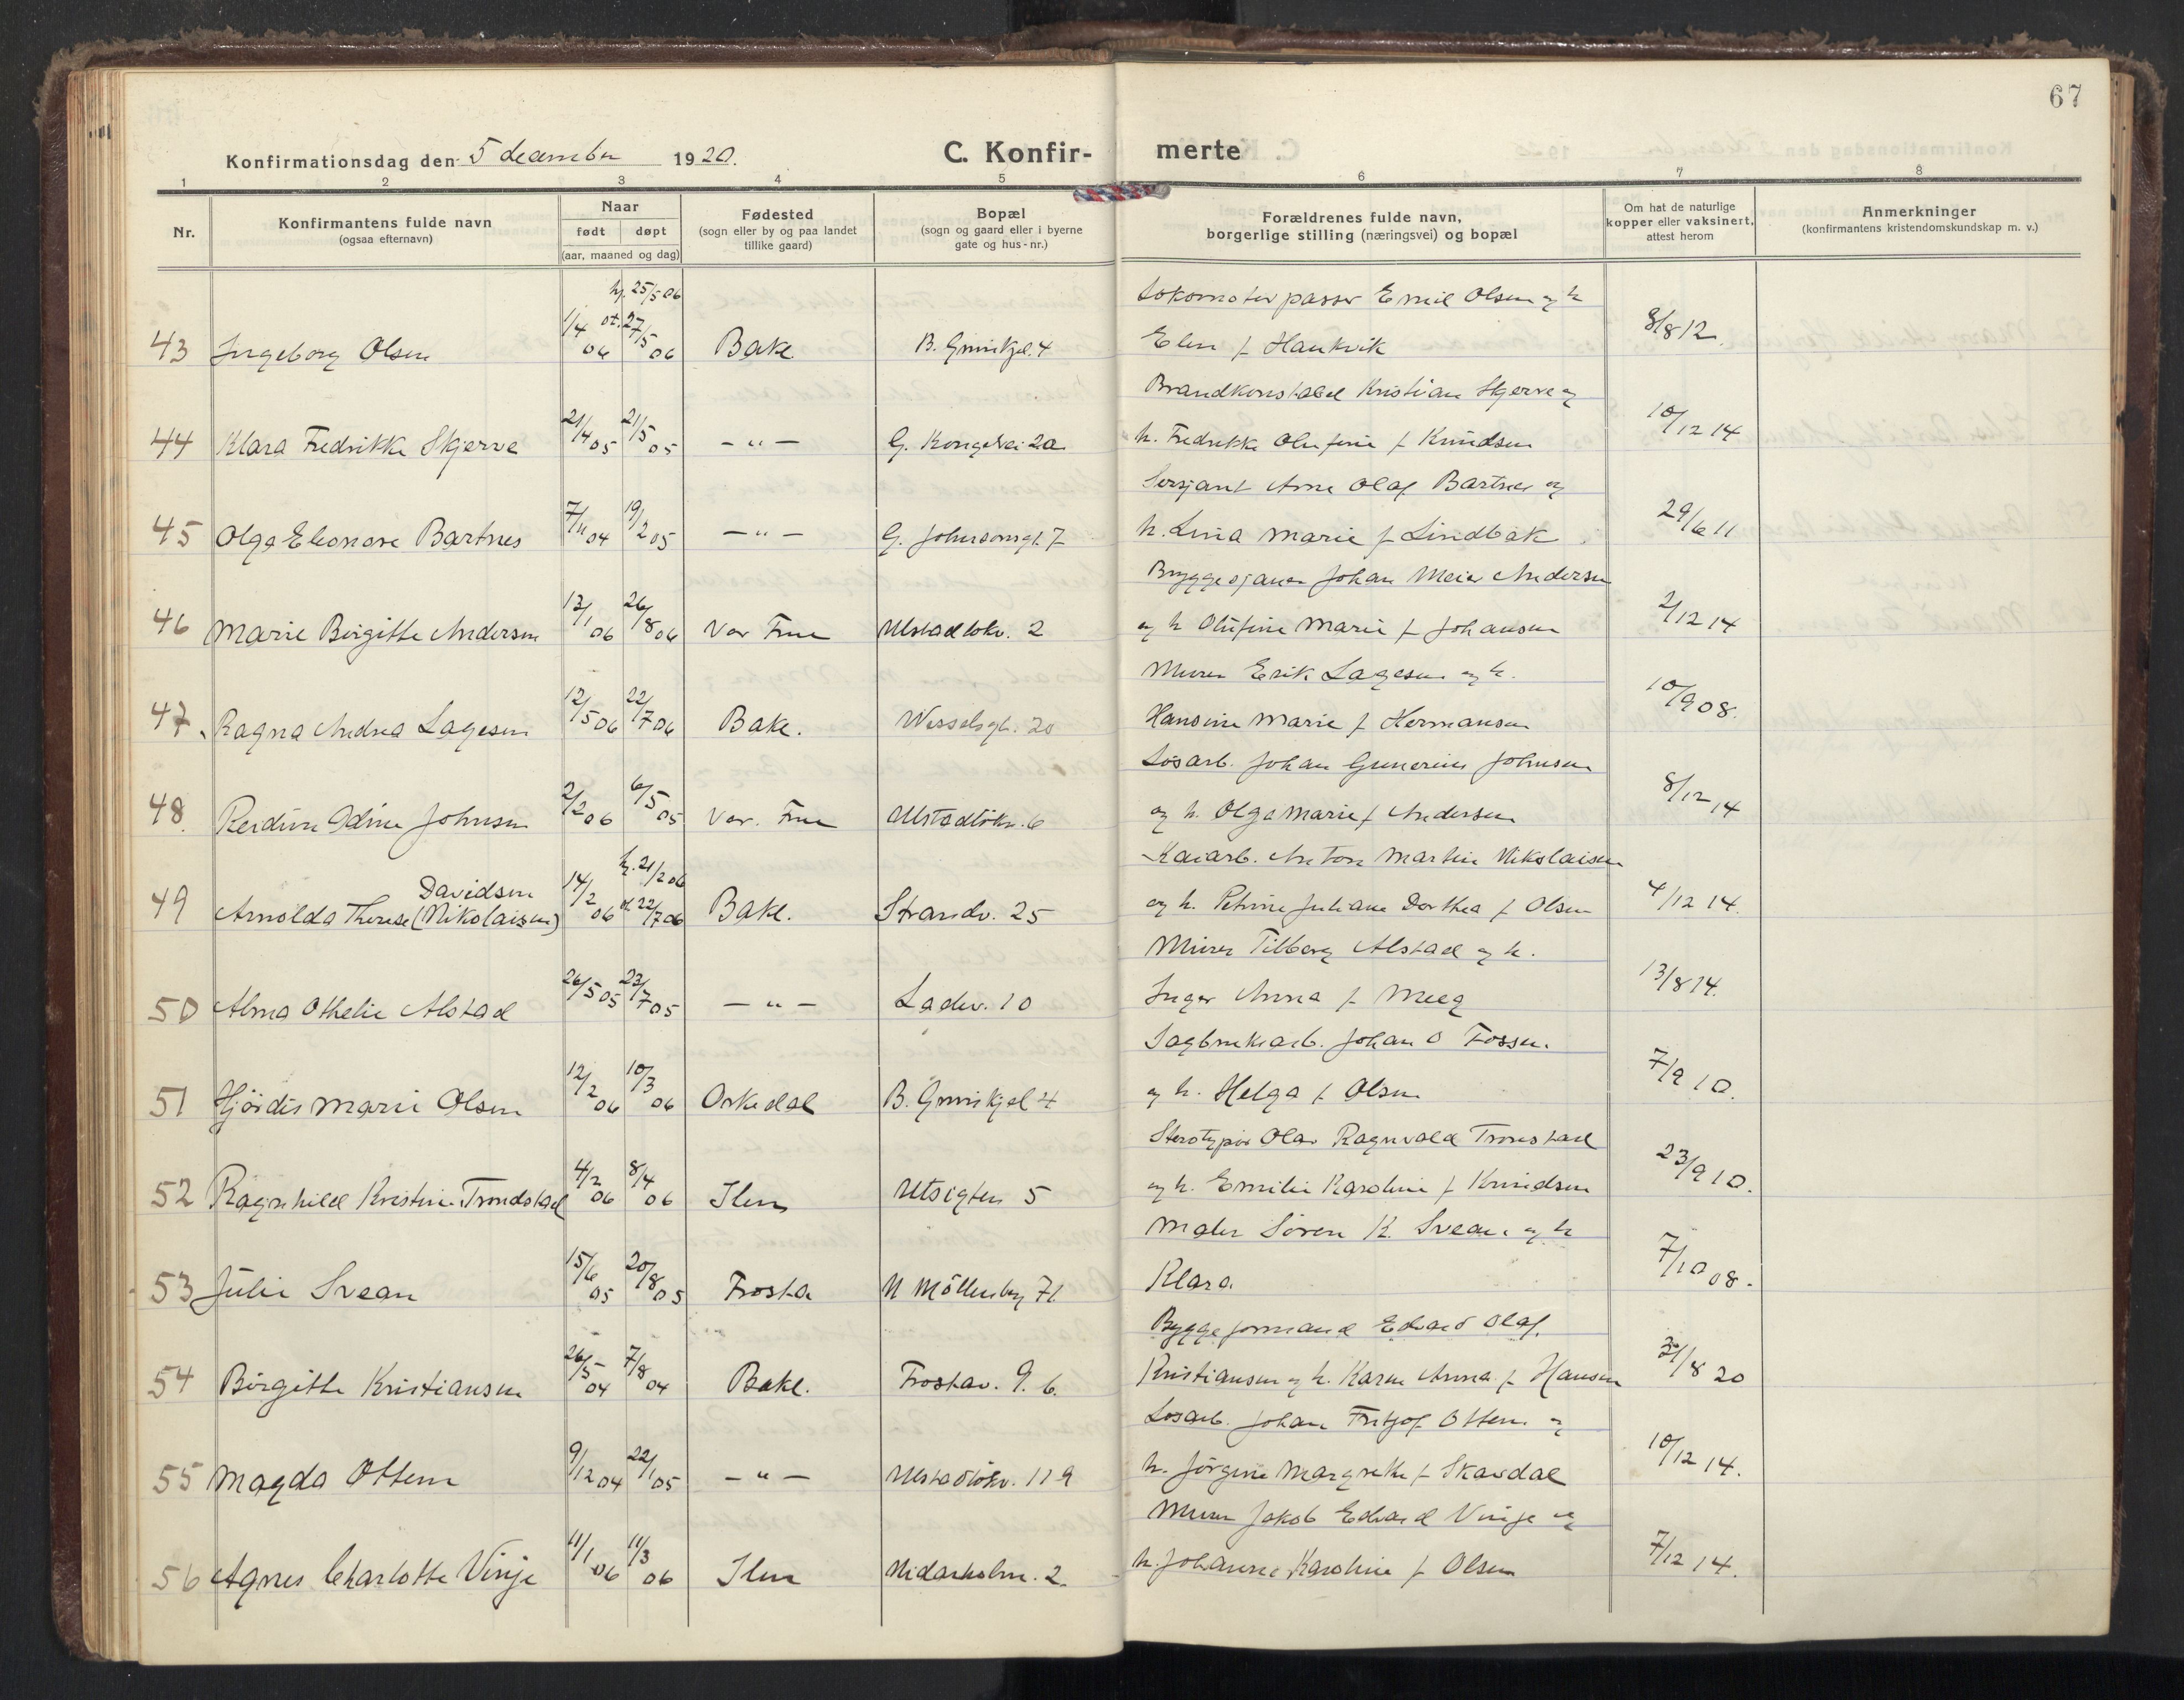 67
Konfirmationsdag den 5 december 1920.
C. Konfir- merte
1 2 3 4 5 6 7 8
Nr.
Konfirmantens fulde navn
(ogsaa efternavn)
Naar
født døpt
(aar, maaned og dag)
Fødested
(sogn eller by og paa landet
tillike gaard)
Bopæl
(sogn og gaard eller i byerne
gate og hus-nr.)
Forældrenes fulde navn,
borgerlige stilling (næringsvei) og bopæl
Om hat de naturlige
kopper eller vaksinert,
attest herom
Anmerkninger
(konfirmantens kristendomskundskap m. v.)
hj. 25/5 06 Lokomotivpasser Emil Olsen og h
43 Ingeborg Olsen 1/4 06 ot. 27/5 06 Bakl. 4 Elen f. Haukvik 8/8 12.
Brandkonstabel Kristian Skjerve og
44 Klara Fredrikke Skjerve 21/4 05 21/5 05 — " — G. Kongevei 20 h. Fredrikke Olufine f Knudsen 10/12 14
Sersjant Arne Olaf Bartnes og
45 Olga Eleonore Bartnes 7/11 04 19/2 05 — " — G. Johnsonsgt. 7 h. Lina Marie f Lindbak 29/6 11
Bryggesjauer Johan Meier Andersen
46 Marie Birgitte Andersen 13/1 06 26/8 06 Vor Frue Ulstadløkv. 2 og h Olufine Marie f Johansen 2/12 14
Murer Erik Lagesen og h.
47 Ragna Andrea Lagesen 12/5 06 22/7 06 Bakl. Wesselsgt. 20 Hansine Marie f Hermansen 10/9 08.
Løsarb. Johan Gunerius Johnsen
48. Reidun Odine Johnsen 2/2 06 6/5 05 Vor. Frue Ulstadløkv. 6 og h. Olga Marie f Andersen 8/12 14
Davidsen hj. 21/2 06 Kaiarb. Anton Martin Nikolaisen
49 Arnolda Therese (Nikolaisen) 14/2 06 ot. 22/7 06 Bakl. Strandv. 25 og h. Petrine Juliane Dorthea f Olsen 4/12 14.
Murer Tilberg Alstad og h.
50 Alma Othelie Alstad 26/5 05 23/7 05 — " — Ladev. 10 Inger Anna f Meeg 13/8 14.
Sagbruksarb. Johan O Fossen.
51 Hjørdis Marie Olsen 12/2 06 10/3 06 Orkedal B. 4 og h. Helga f Olsen 7/9 10.
Sterotypør Olav Ragnvald Tronstad
52 Ragnhild Kristine Trondstad 4/2 06 8/4 06 Ilen Utsigten 5 og h. Emilie Karoline f Knudsen 23/9 10.
Maler Søren K. Svean og h
53 Julie Svean 15/6 05 20/8 05 Frosta N Møllenberg 71 Klara 7/10 08.
Byggeformand Edvard Olaf
54 Birgitte Kristiansen 26/5 04 7/8 04 Bakl. Frostav. 9. b. Kristiansen og h. Karen Anna f Hansen 31/8 20
Løsarb. Johan Fritjof Ottem og
55 Magda Ottem 9/12 04 22/1 05 — " — Ulstadløkv. 11 9 h. Jørgine Margrethe f Skavdal 10/12 14.
Murer Jakob Edvard Vinje og
56 Agnes Charlotte Vinje 11/1 06 11/3 06 Ilen Nidarholm. 2. h. Johanne Karoline f Olsen 7/12 14.